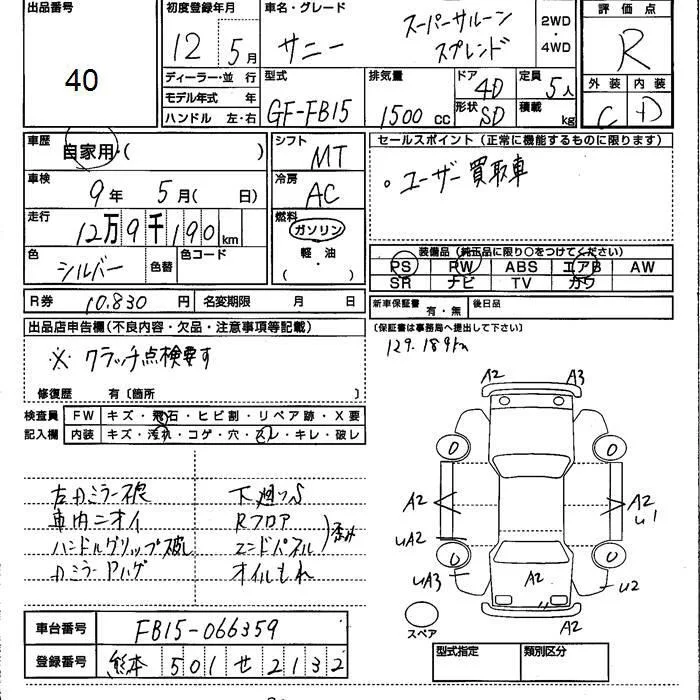 出品番号
40
初度登録年月
12年 5月
車名・グレード
サニー スーパーサルーン
スプレンド
2WD
・
4WD
評価点
R
外装 内装
C D
ディーラー・並行
モデル年式 年
ハンドル 左・右
型式
GF-FB15
排気量
1500 cc
ドア 4D
形状 SD
定員 5人
積載 kg
車歴
自家用・( )
車検
9年 5月( 日)
走行
12万9千190km
色
シルバー
色替
色コード
シフト
MT
冷房
AC
燃料
ガソリン
軽・油
( )
セールスポイント (正常に機能するものに限ります)
○ユーザー買取車
装備品 (純正品に限り○をつけてください)
PS PW ABS エアB AW
SR ナビ TV カワ
R券 10.830円 名変期限 月 日
新車保証書 有・無 後日品
(保証書は事務局へ提出して下さい)
129.189km
出品店申告欄(不良内容・欠品・注意事項等記載)
※ クラッチ点検要す
修復歴 有〔箇所 〕
検査員
記入欄
FW キズ・飛石・ヒビ割・リペア跡・X要
内装 キズ・汚れ・コゲ・穴・スレ・キレ・破レ
右Dミラー不良
車内ニオイ
ハンドルグリップ破レ
Dミラーハゲ
下廻りS
Rフロア
エンドパネル
歪み
オイルもれ
A2 A3
0 0
A2 A2
U1
UA2
0 0
UA3 A2 U2
A2
スペア
車台番号 FB15-066359
登録番号 熊本 501 せ 2132
型式指定 類別区分